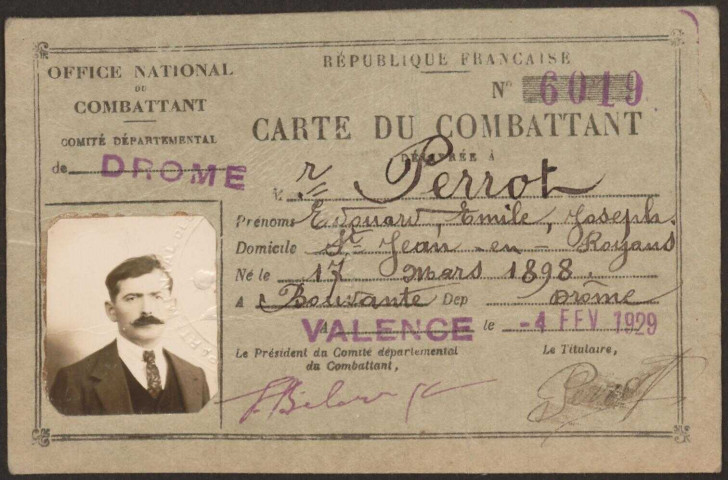 OFFICE NATIONAL
DU
COMBATTANT
COMITÉ DÉPARTEMENTAL
de DROME
RÉPUBLIQUE FRANÇAISE
N° 6019
CARTE DU COMBATTANT
DÉLIVRÉE A
M r Perrot
Prénoms Edouard, Emile, Joseph.
Domicile St Jean-en-Royans
Né le 17 mars 1898.
A Bouvante Dep Drôme
A VALENCE le -4 FEV 1929
Le Président du Comité départemental
du Combattant,
Le Titulaire,
Perrot